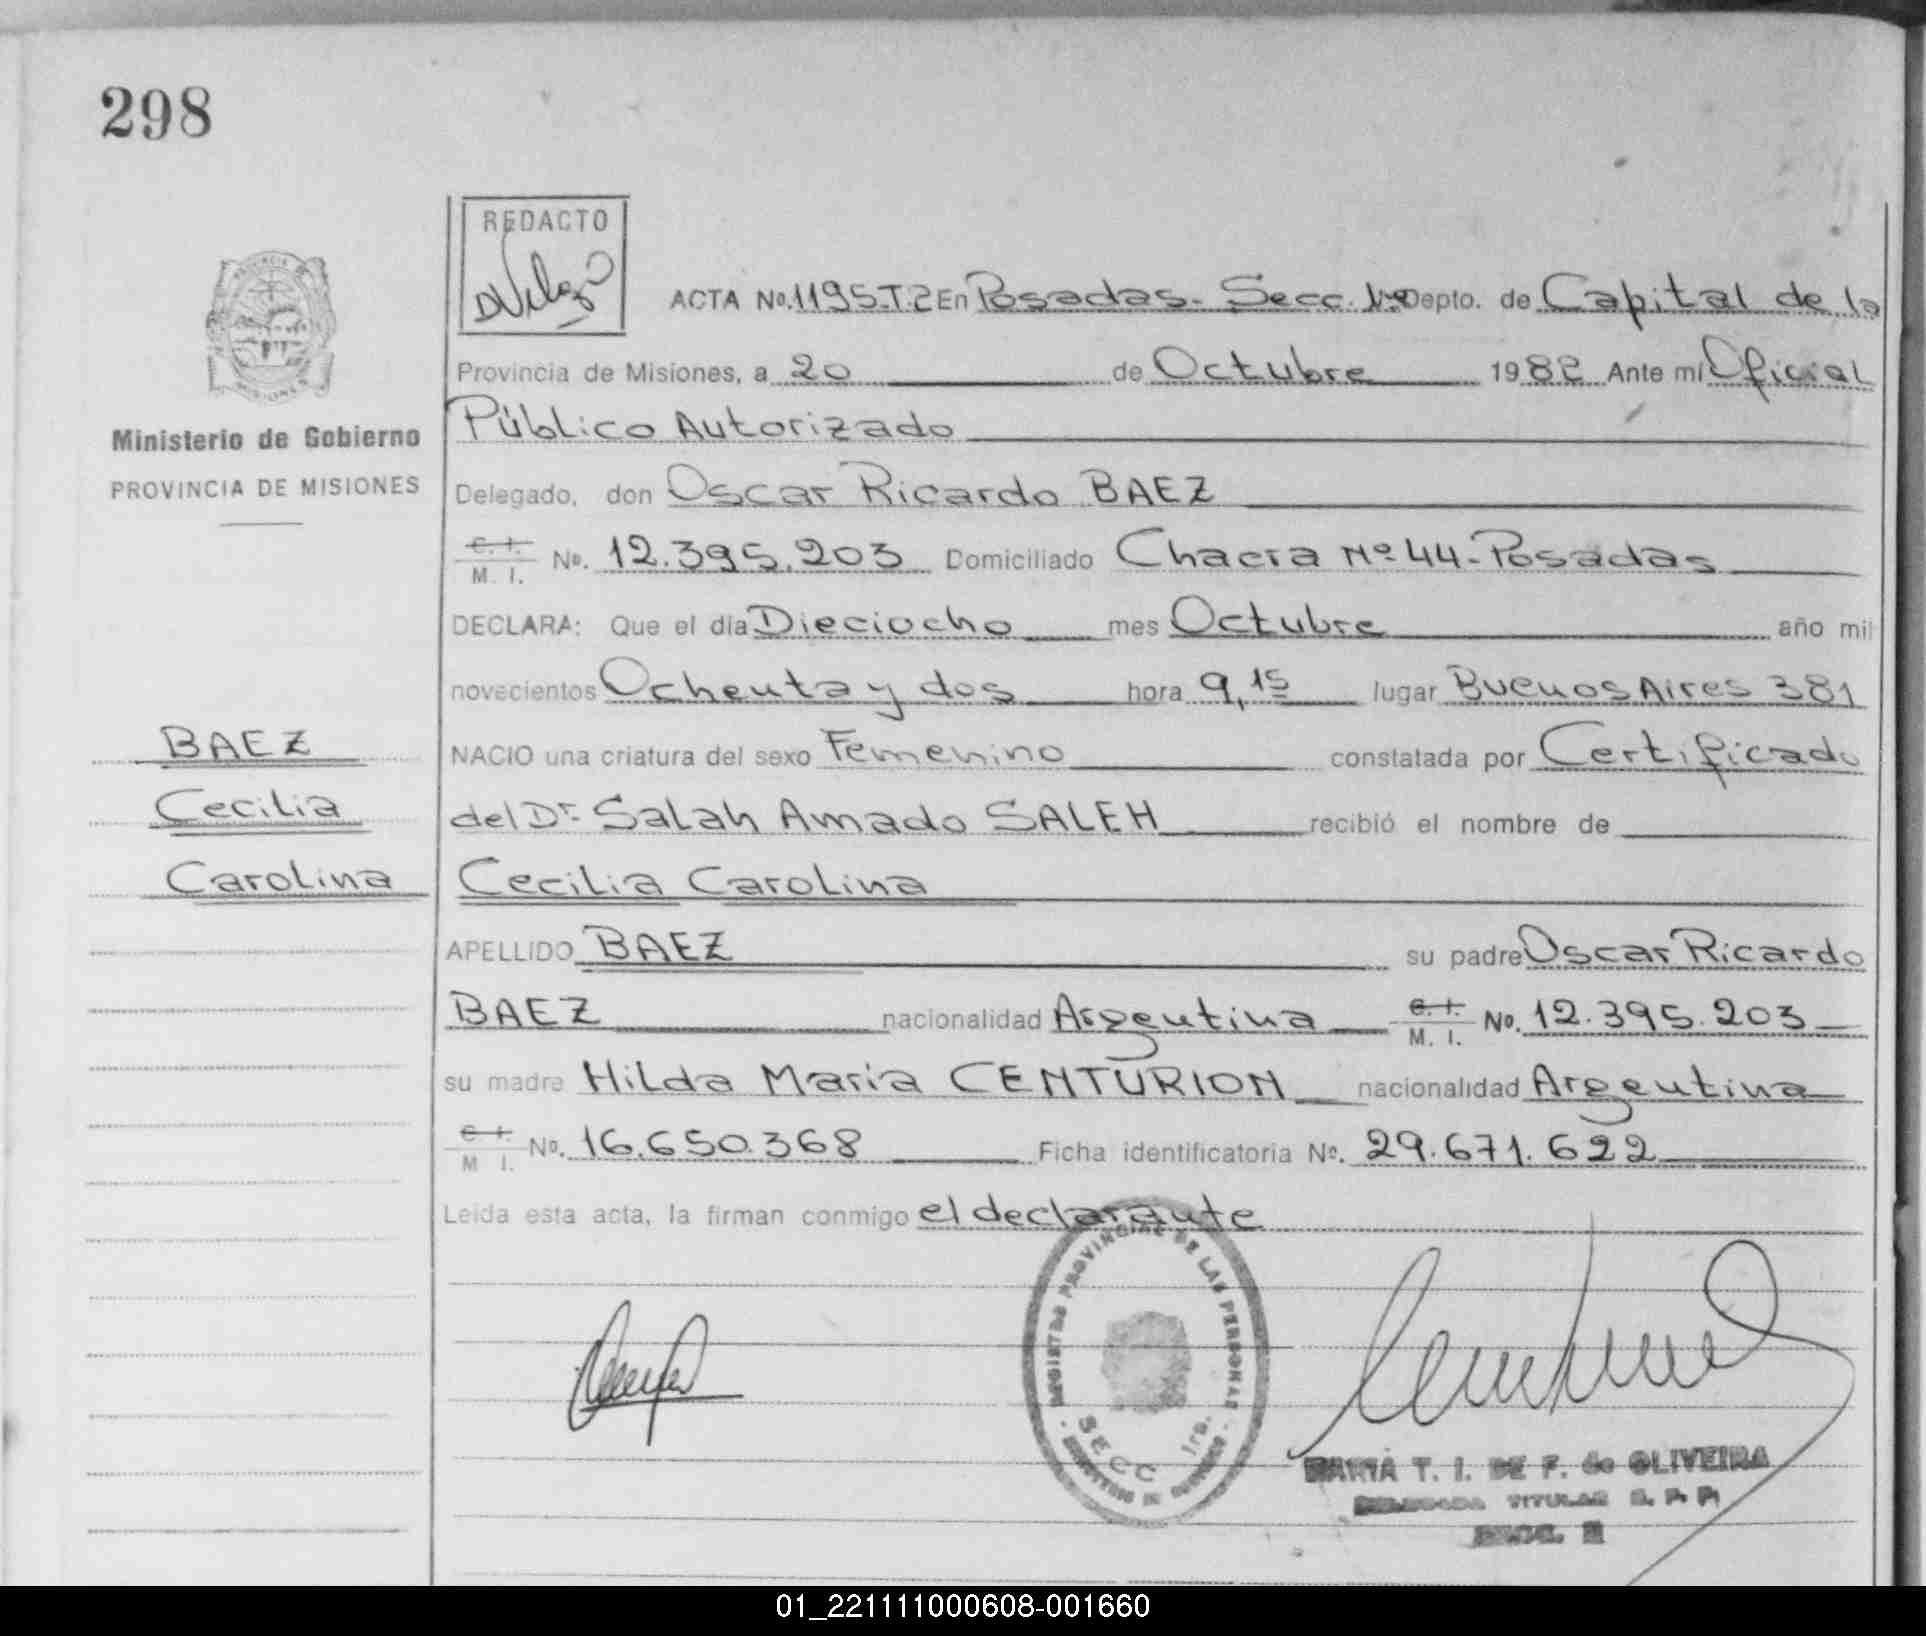 298
REDACTO
ACTA No. 1195-T.2 En Posadas- Secc. 1ra Depto. de Capital de la
Provincia de Misiones, a 20 de Octubre 1982 Ante mí Oficial
Público Autorizado
Ministerio de Gobierno
PROVINCIA DE MISIONES
Delegado, don Oscar Ricardo BAEZ
C. I. M. I. No. 12.395.203 Domiciliado Chacra Nº 44-Posadas
DECLARA: Que el día Dieciocho mes Octubre año mil
novecientos Ochenta y dos hora 9,15 lugar Buenos Aires 381
BAEZ
NACIO una criatura del sexo Femenino constatada por Certificado
Cecilia
del Dr. Salah Amado SALEH recibió el nombre de
Carolina
Cecilia Carolina
APELLIDO BAEZ su padre Oscar Ricardo
BAEZ nacionalidad Argentina C. I. M. I. No. 12.395.203
su madre Hilda Maria CENTURION nacionalidad Argentina
C. I. M. I. No. 16.650.368 Ficha identificatoria No. 29.671.622
Leída esta acta, la firman conmigo el declarante
REGISTRO PROVINCIAL DE LAS PERSONAS
SECC 1ra.
MARIA T. I. DE F. de OLIVEIRA
DELEGADA TITULAR R. P. P.
01_221111000608-001660